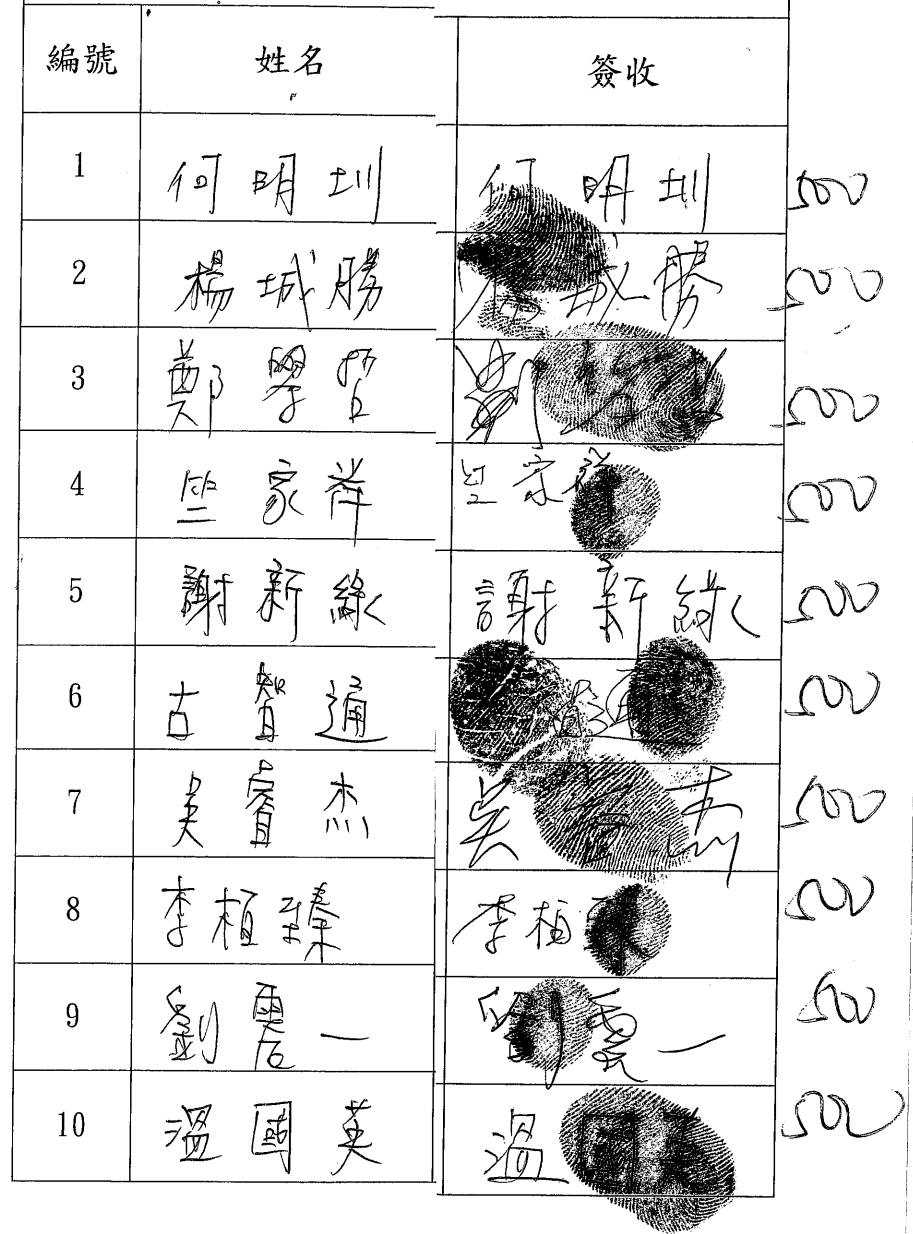 編號 姓名 簽收
1 何明圳 何明圳 500
2 楊城勝 楊城勝 500
3 鄭學哲 鄭 500
4 家祥 家祥 500
5 謝新綠 謝新綠 500
6 古智通 500
7 吳睿杰 吳睿杰 500
8 李植臻 李植 500
9 劉震一 劉震一 500
10 溫國英 溫國英 500